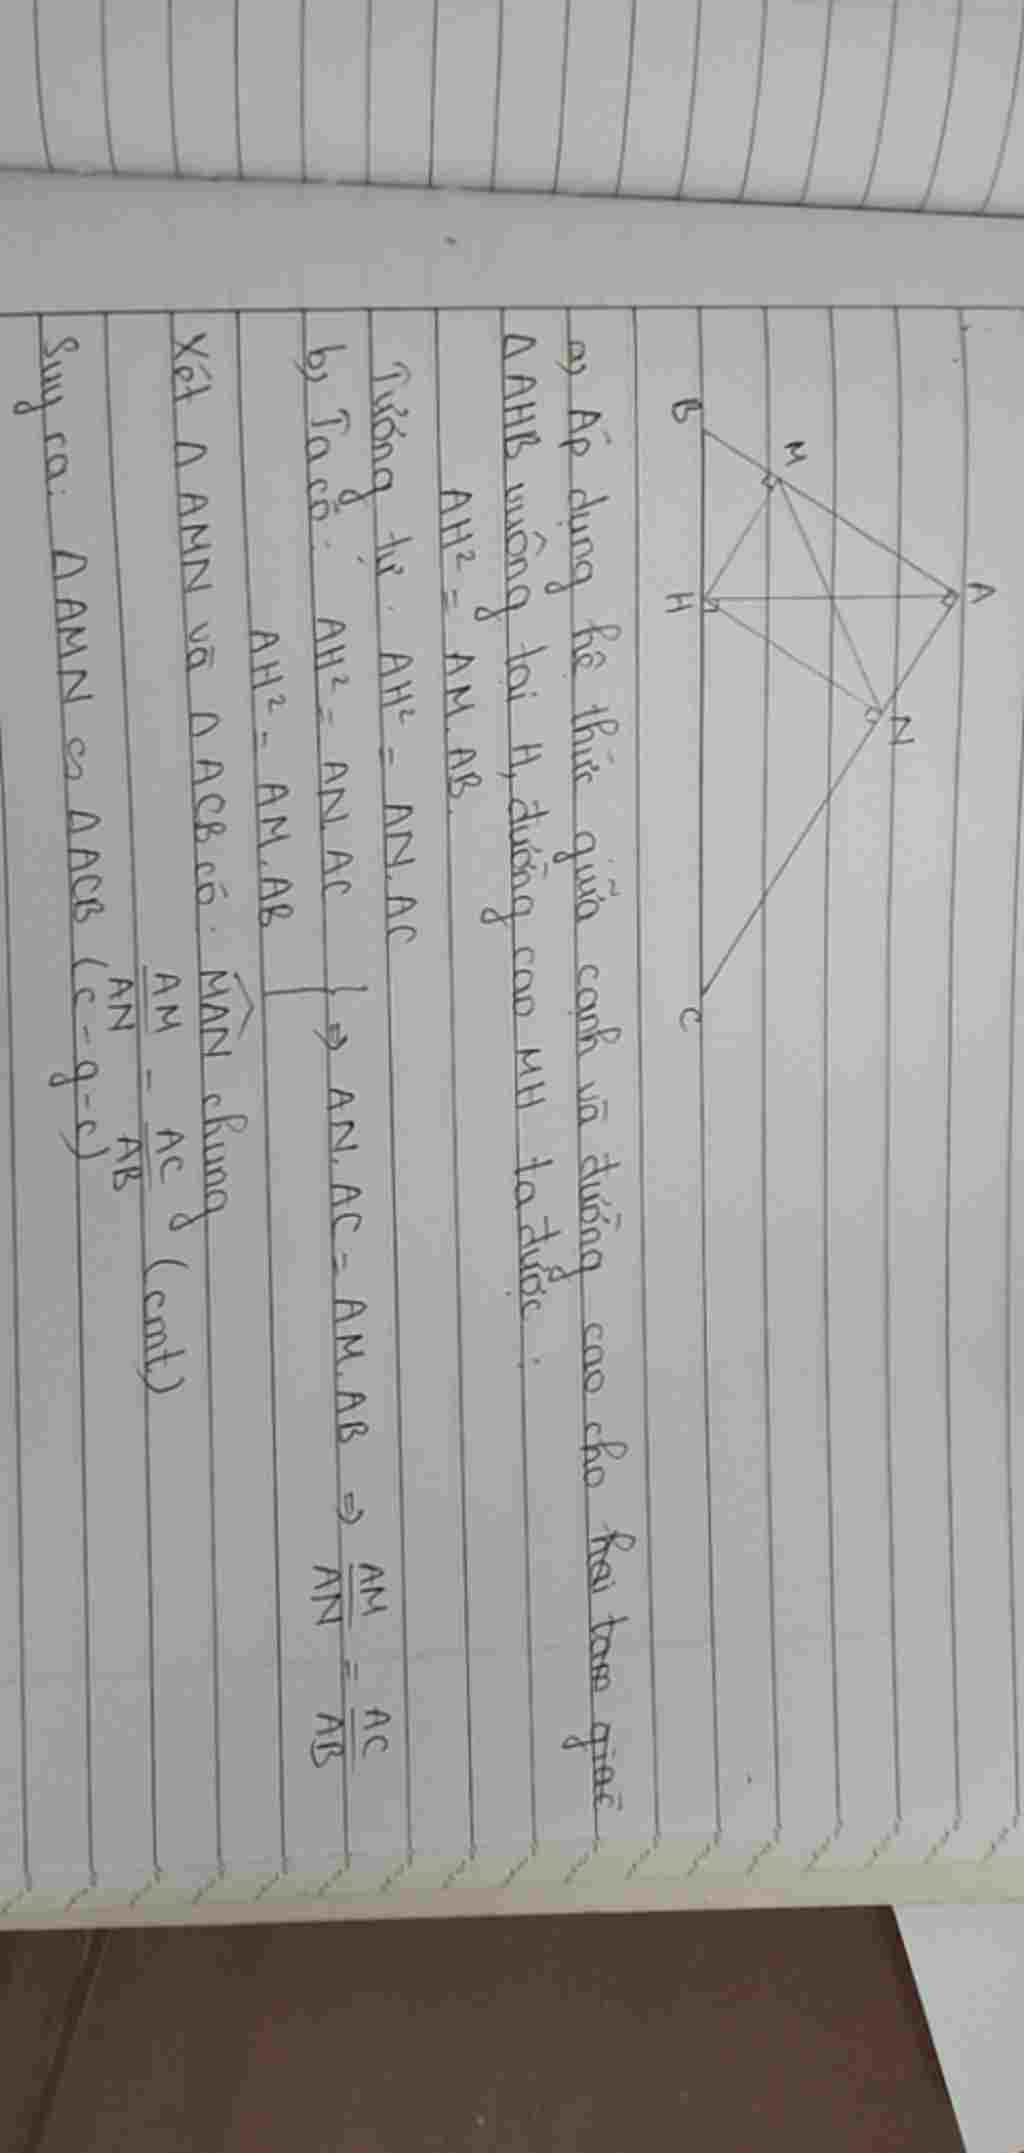 A
M
N
B
H
C
a) Áp dụng hệ thức giữa cạnh và đường cao cho hai tam giác
Δ AHB vuông tại H, đường cao MH ta được:
AH² = AM.AB
Tương tự: AH² = AN.AC
b) Ta có: AH² = AN.AC } ⇒ AN.AC = AM.AB ⇒ AM/AN = AC/AB
AH² = AM.AB
Xét Δ AMN và Δ ACB có: M̂AN chung
AM/AN = AC/AB (cmt)
Suy ra: Δ AMN ∽ Δ ACB (c-g-c)